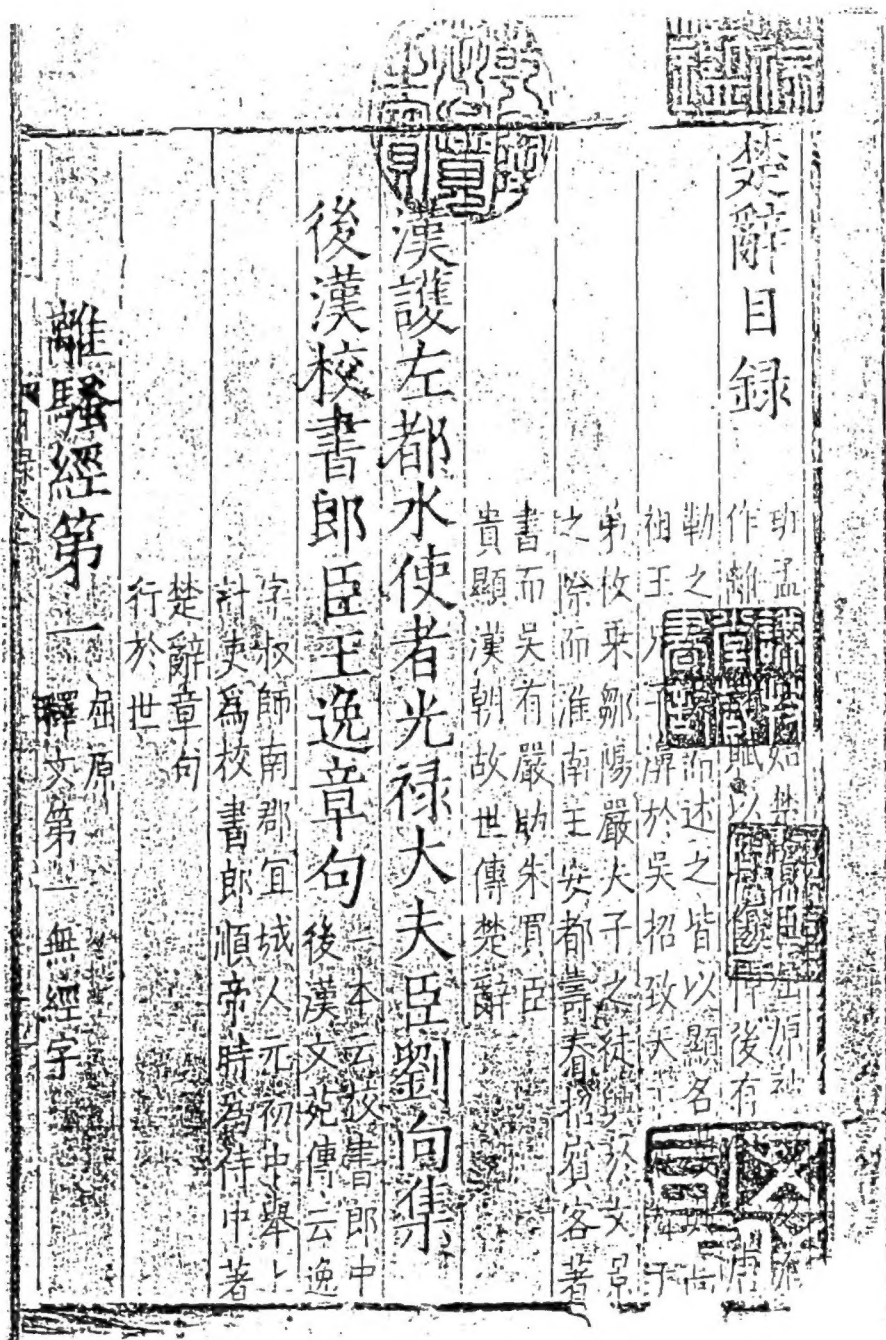 楚辭目録
班孟 如楚賢臣屈原
作離 賦以 傷 後有
勒之 而述之皆以顯名
祖王 於吳招致天下 子
弟枚乗鄒陽嚴夫子之徒興於文景
之際而淮南王安都壽春招賓客著
書而吳有嚴助朱買臣
貴顯漢朝故世傳楚辭
漢護左都水使者光禄大夫臣劉向集
後漢校書郎臣王逸章句
一本云校書郎中
後漢文苑傳云逸
字叔師南郡宜城人元初中舉上
計吏為校書郎順帝時為侍中著
楚辭章句
行於世
離騷經第一
屈原
釋文第一無經字